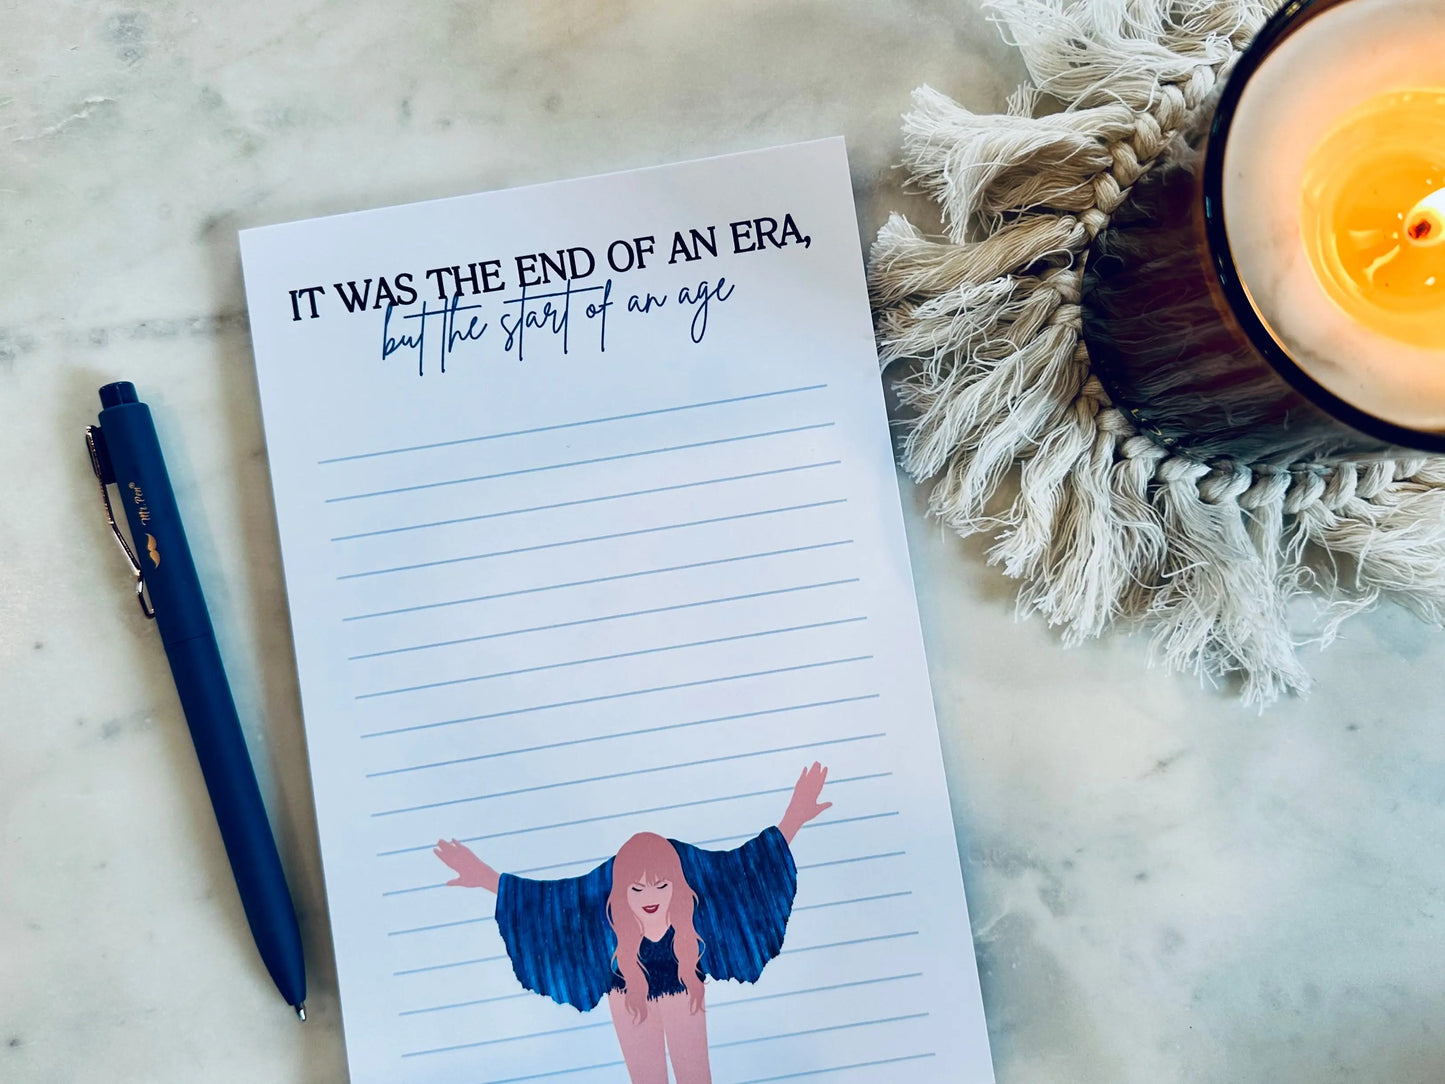 IT WAS THE END OF AN ERA,
but the start of an age
Mr. Pen®